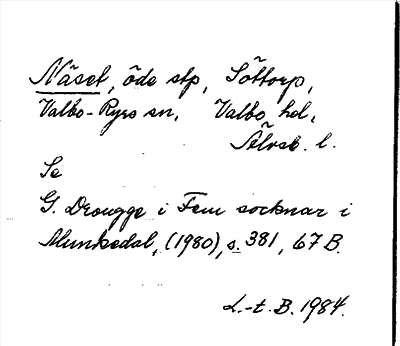 Näset, öde stp, Söttorp,
Valbo-Ryrs sn, Valbo hd,
Älvsb. l.
Se
G. Drougge i Fem socknar i
Munkedal, (1980), s. 381, 67 B.
L.-t. B. 1984.